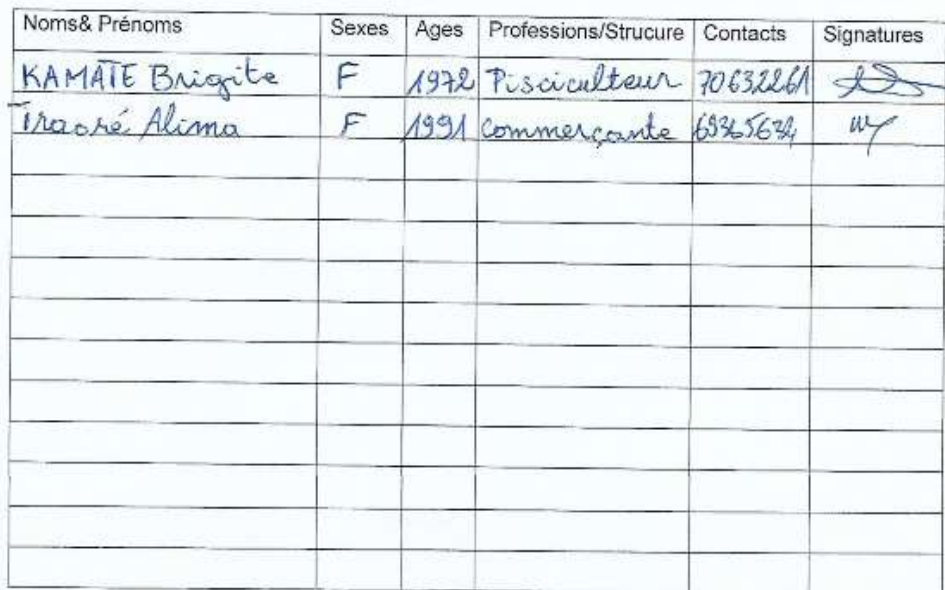 Noms& Prénoms Sexes Ages Professions/Strucure Contacts Signatures
KAMATE Brigite F 1972 Pisciculteur 70632261
Traoré Alima F 1991 Commerçante